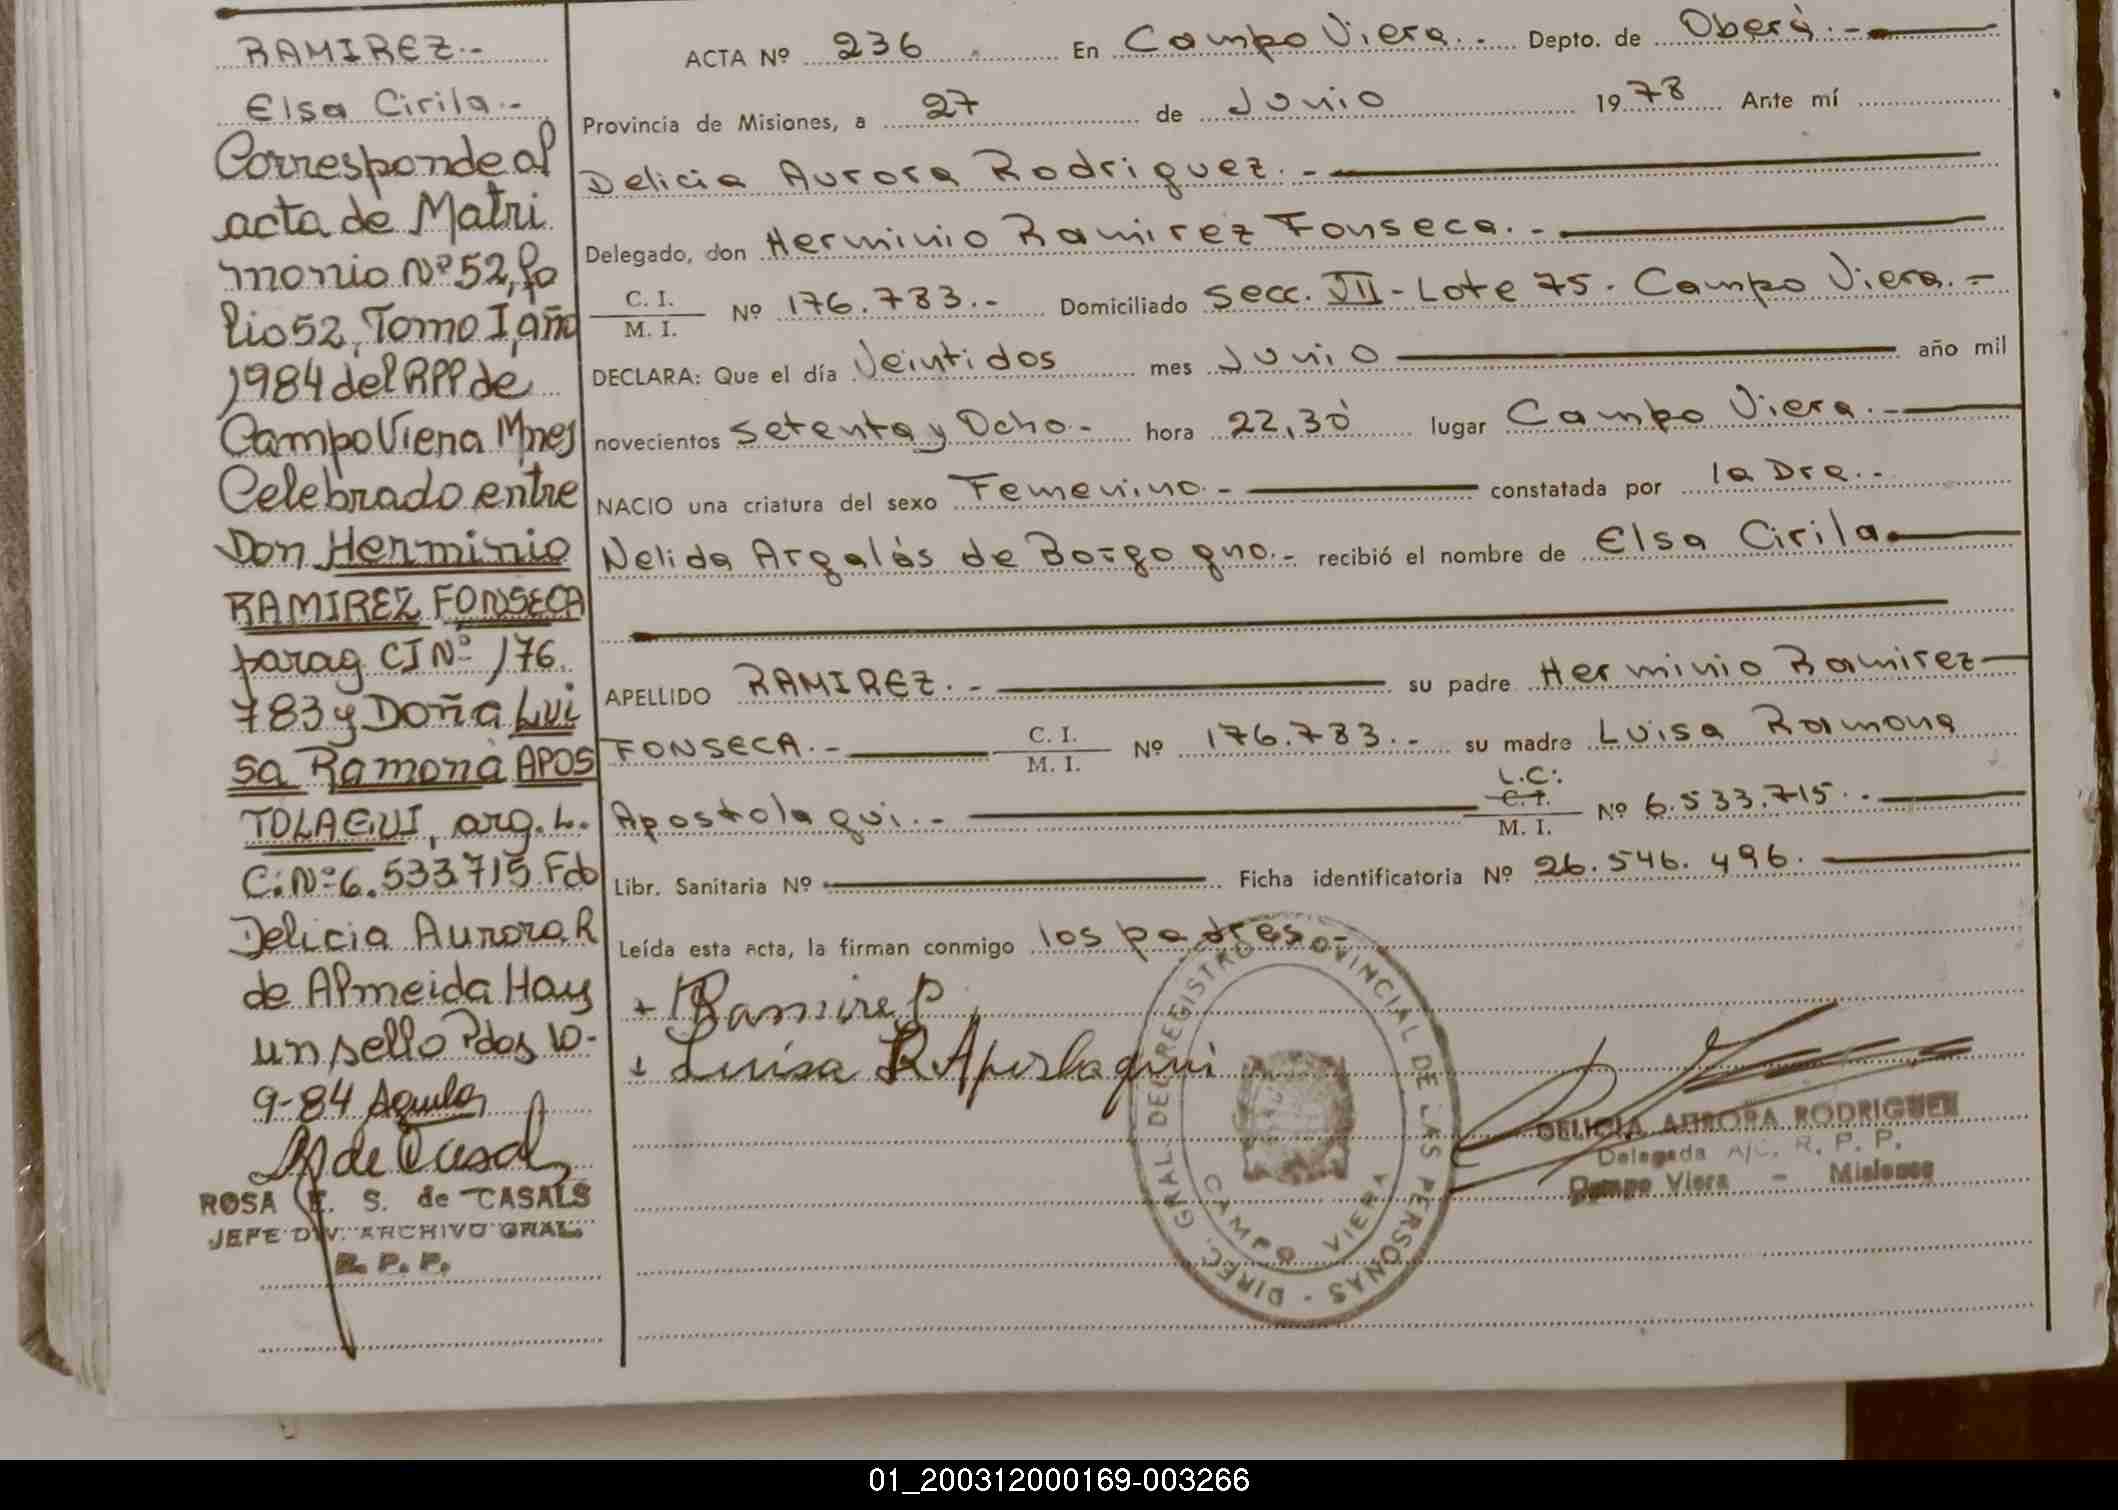 RAMIREZ.-
Elsa Cirila.-
Corresponde al
acta de Matri
monio Nº 52, fo
lio 52, Tomo I, año
1984 del RPP de
Campo Viera Mnes
Celebrado entre
Don Herminio
RAMIREZ FONSECA
parag CI Nº 176.
783 y Doña Lui
sa Ramona APOS
TOLAGUI, arg. L.
C. Nº 6.533.715 Fdo
Delicia Aurora R
de Almeida Hay
un sello Pdos 10-
9-84
ROSA E. S. de CASALS
JEFE DIV. ARCHIVO GRAL.
R. P. P.
ACTA Nº 236 . En Campo Viera.- Depto. de Oberá.-
Provincia de Misiones, a 27 de Junio 1978 Ante mí
Delicia Aurora Rodriguez.-
Delegado, don Herminio Ramirez Fonseca.-
C. I.
M. I. Nº 176.783.- Domiciliado Secc. VII - Lote 75. Campo Viera.-
DECLARA: Que el día Veintidos mes Junio año mil
novecientos Setenta y Ocho.- hora 22,30 lugar Campo Viera.-
NACIO una criatura del sexo Femenino.- constatada por la Dra.-
Nelida Argalás de Borgogno.- recibió el nombre de Elsa Cirila
APELLIDO RAMIREZ.- su padre Herminio Ramirez
FONSECA.- C. I. M. I. Nº 176.783.- su madre Luisa Ramona
Apostolagui.- L.C. C. I. M. I. Nº 6.533.715.-
Libr. Sanitaria Nº Ficha identificatoria Nº 26.546.496.
Leída esta acta, la firman conmigo los padres.-
+ Ramirez
+ Luisa R Apostolagui
DIREC. GRAL. DEL REGISTRO PROVINCIAL DE LAS PERSONAS -
CAMPO VIERA
DELICIA AURORA RODRIGUEZ
Delegada A/C. R. P. P.
Campo Viera - Misiones
01_200312000169-003266